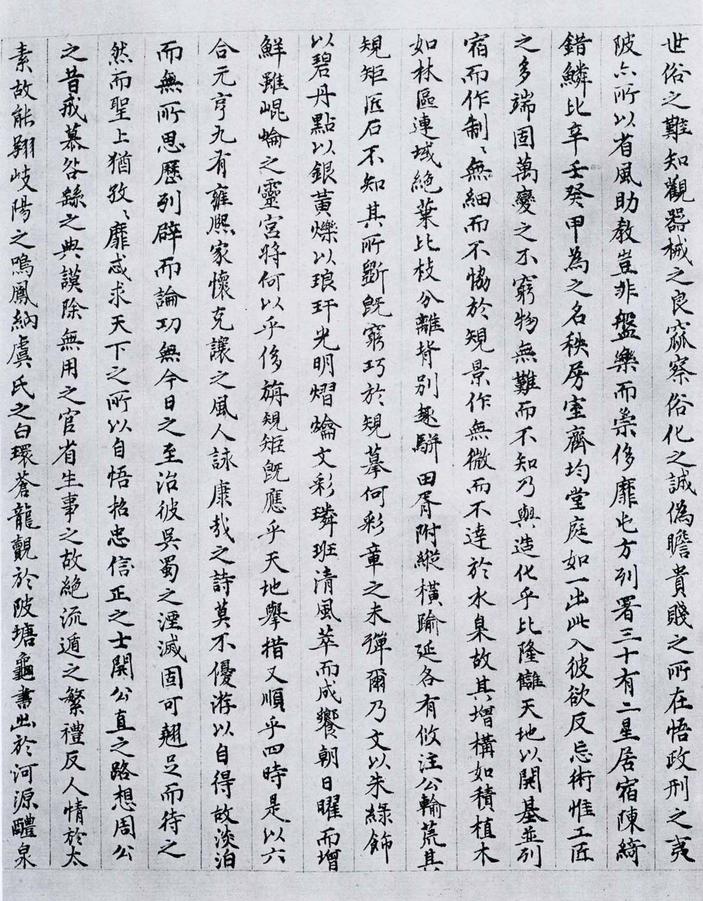 世俗之難知觀器械之良窳察俗化之誠偽瞻貴賤之所在悟政刑之夷
陂亦所以省風助教豈非盤樂而崇侈靡屯方列署三十有二星居宿陳綺
錯鱗比辛壬癸甲為之名秩房室齊均堂庭如一出此入彼欲反忘術惟工匠
之多端固萬變之不窮物無難而不知乃與造化乎比隆讎天地以開基並列
宿而作制〻無細而不協於規景作無微而不違於水臬故其增構如積植木
如林區連域絕葉比枝分離背別趣駢田胥附縱橫踰延各有攸注公輸荒其
規矩匠石不知其所斵既窮巧於規摹何彩章之未殫爾乃文以朱綠飾
以碧丹點以銀黃爍以琅玕光明熠爚文彩璘班清風萃而成響朝日曜而增
鮮雖崐崘之靈宮將何以乎侈旃規矩既應乎天地舉措又順乎四時是以六
合元亨九有雍熙家懷克讓之風人詠康哉之詩莫不優游以自得故淡泊
而無所思歷列辟而論功無今日之至治彼吳蜀之湮滅固可翹足而待之
然而聖上猶孜〻靡忒求天下之所以自悟招忠信正之士開公直之路想周公
之昔戒慕咎繇之典謨除無用之官省生事之故絕流遁之繁禮反人情於太
素故能翔岐陽之鳴鳳納虞氏之白環蒼龍覿於陂塘龜書出於河源醴泉